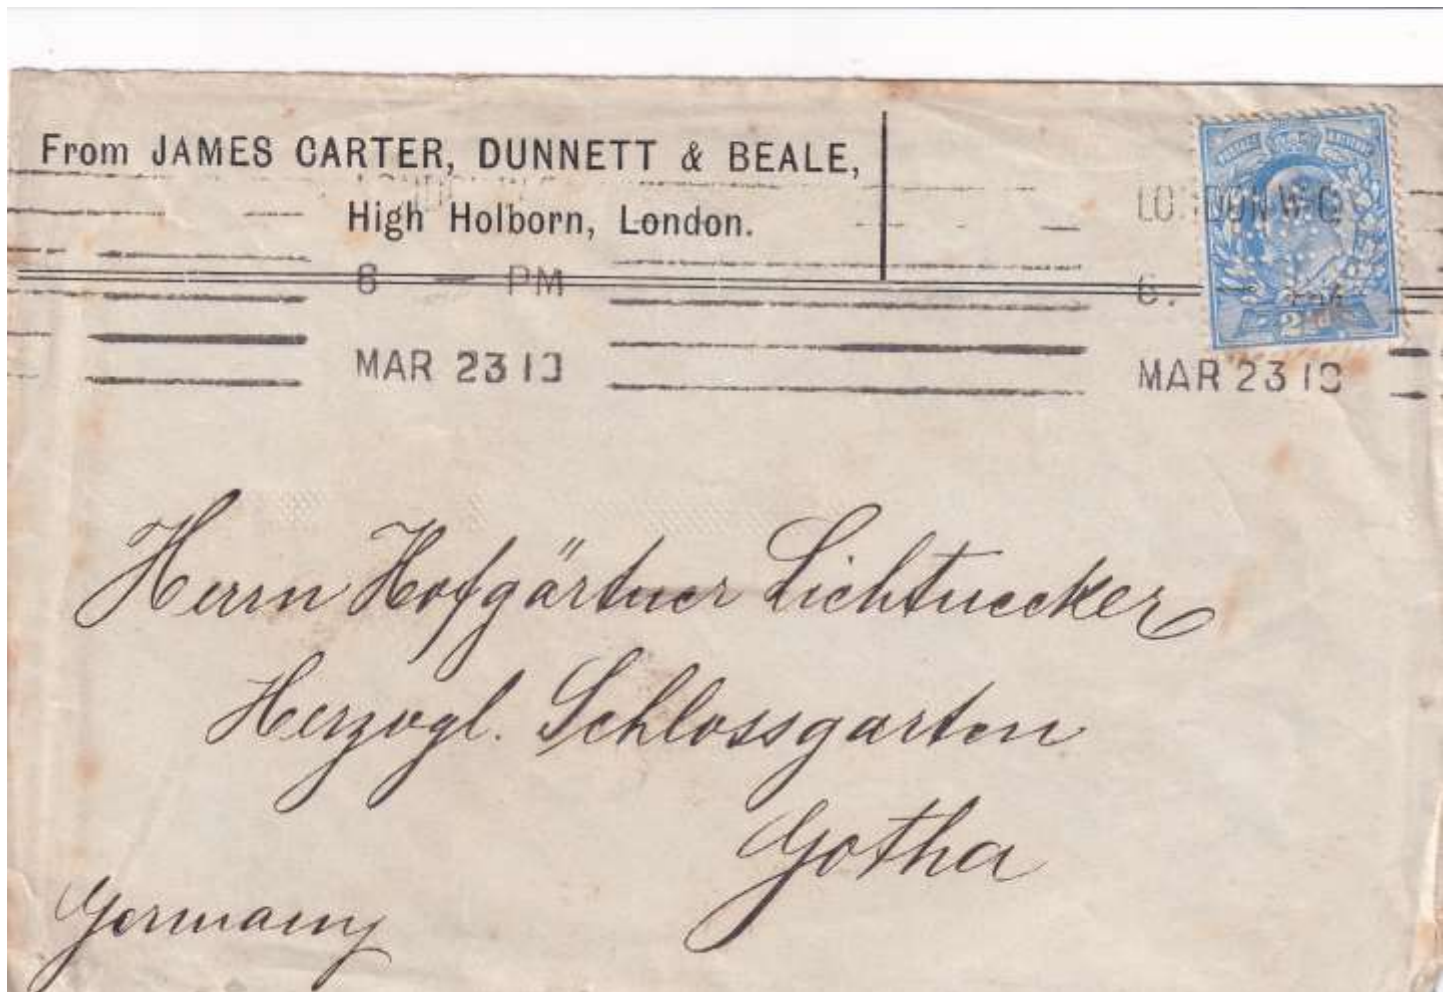 From JAMES CARTER, DUNNETT & BEALE,
High Holborn, London.
LONDON W.C
6 — PM
MAR 23 10
LONDON W.C
6.
MAR 23 10
POSTAGE REVENUE
2½d
Herrn Hofgärtner Lichtnecker
Herzogl. Schlossgarten
Gotha
Germany